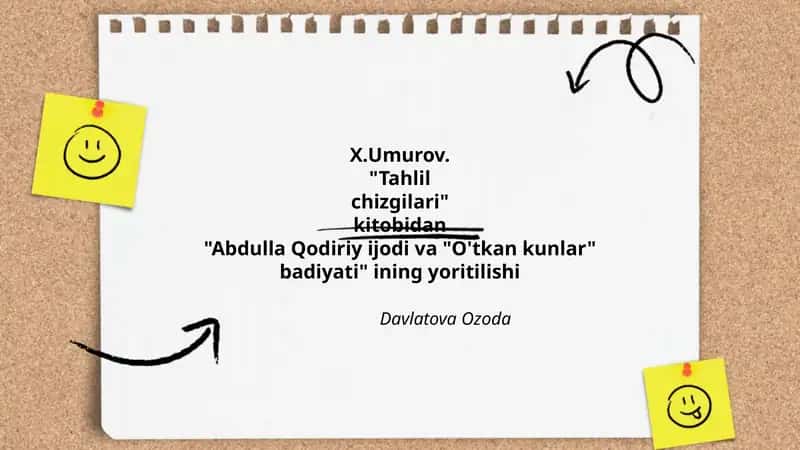 X.Umurov.
"Tahlil
chizgilari"
kitobidan
"Abdulla Qodiriy ijodi va "O'tkan kunlar"
badiyati" ining yoritilishi
Davlatova Ozoda